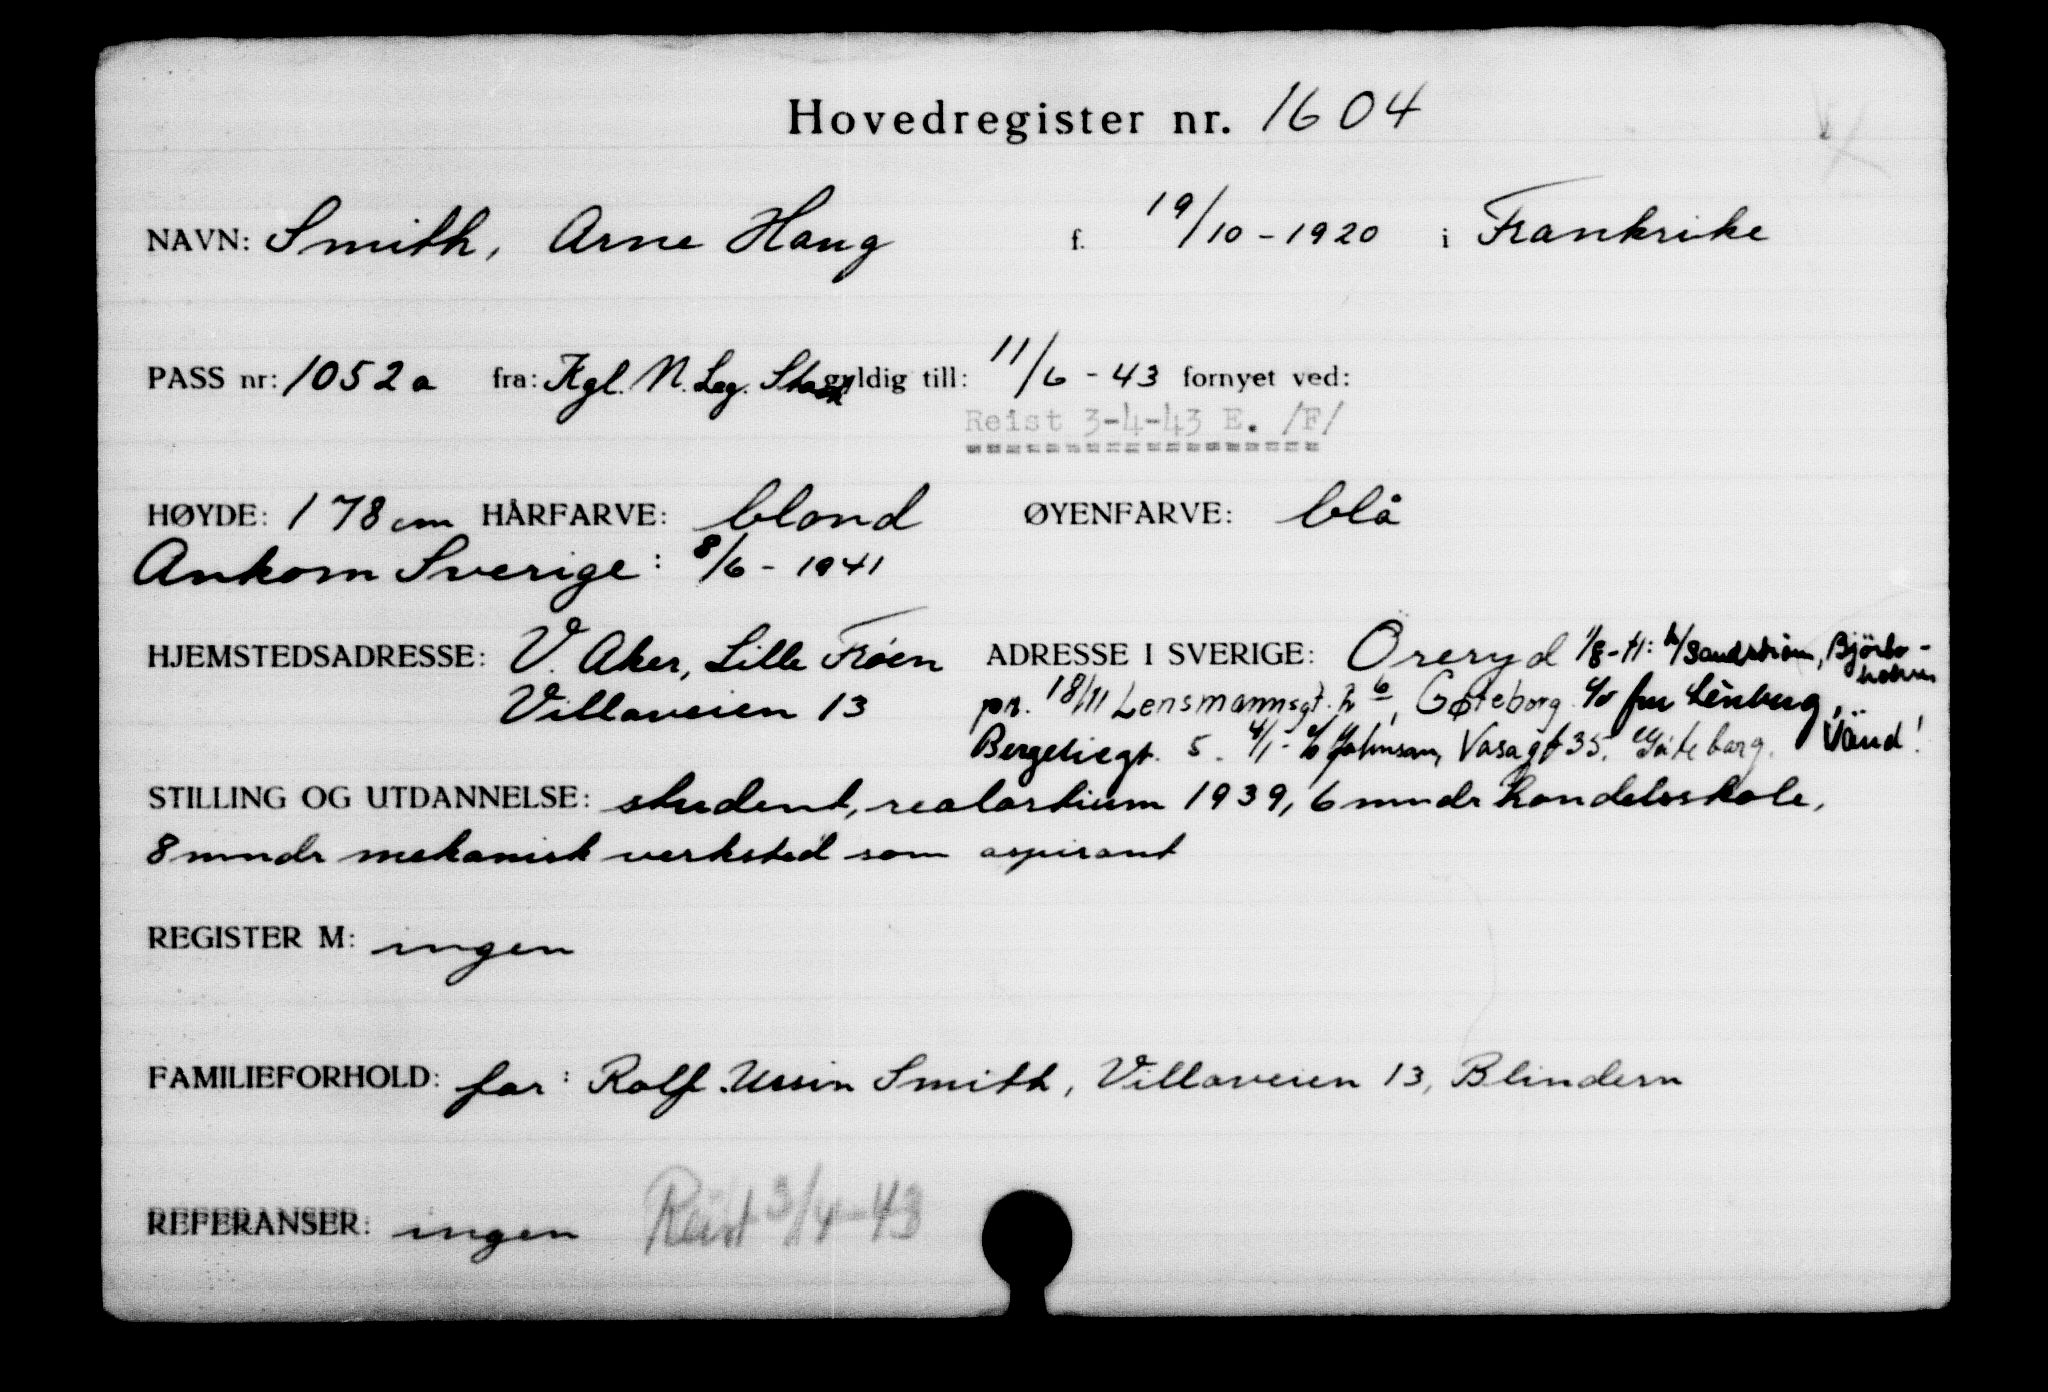 Hovedregister nr. 1604
NAVN: Smith, Arne Haug f. 19/10-1920 i Frankrike
PASS nr: 1052a fra: Kgl. N. Leg. Sthm gyldig till: 11/6-43 fornyet ved:
Reist 3-4-43 E. /F/
HØYDE: 178 cm HÅRFARVE: blond ØYENFARVE: blå
Ankom Sverige: 8/6-1941
HJEMSTEDSADRESSE: V. Aker, Lille Frøen ADRESSE I SVERIGE: Öreryd 1/8-41: h/Sandström, Björbo-
Villaveien 13 pr. 18/11 Lensmannsgt. 6, Gøteborg c/o fru Lénberg,
5. 4/1- c/o Johnson, Vasagt 35, Göteborg. Vänd!
STILLING OG UTDANNELSE: student, realartium 1939, 6 mndr handelsskole,
8 mndr mekanisk verksted som aspirant
REGISTER M: ingen
FAMILIEFORHOLD: far: Rolf Ussin Smith, Villaveien 13, Blindern
REFERANSER: ingen Reist 3/4-43